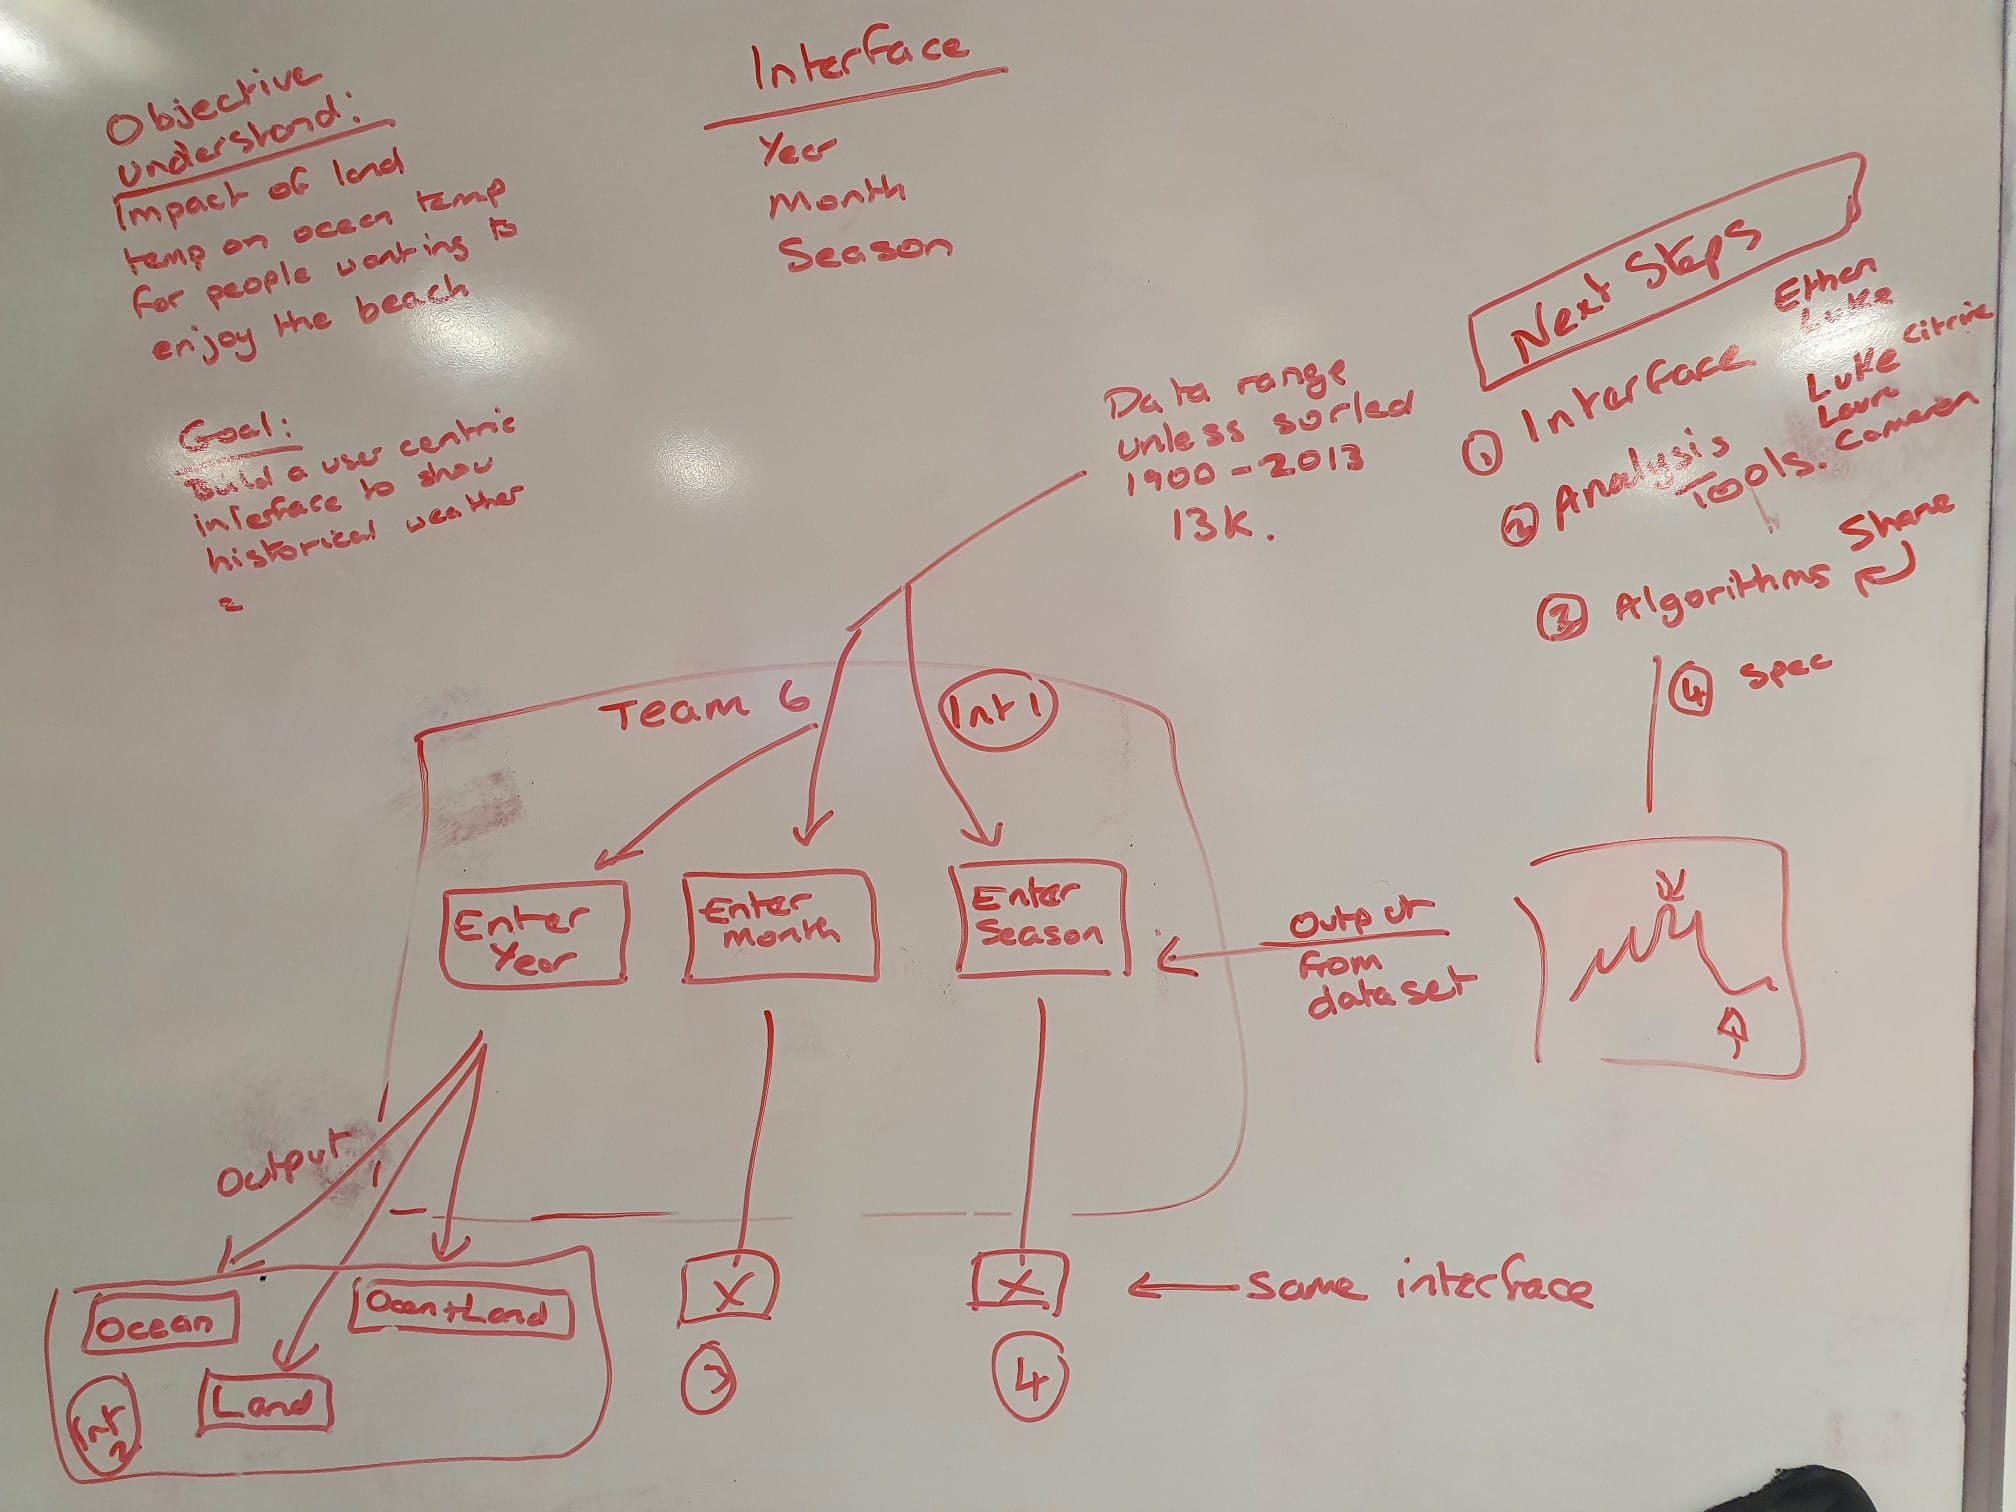 Objective
understand:
Impact of land
temp on ocean temp
for people wanting to
enjoy the beach
Goal:
Build a user centric
interface to show
historical weather
Interface
Year
Month
Season
Data range
unless sorled
1900-2013
13K.
Next Steps
① Interface
Ethan
Luke
Citrine
② Analysis
Tools.
Luke
Laura
Cameron
③ Algorithms
Shane
④ Spec
Team 6
Int 1
Enter
Year
Enter
Month
Enter
Season
Output
from
dataset
Output
Ocean
Ocean+Land
Land
Int
2
X
X
same interface
3
4